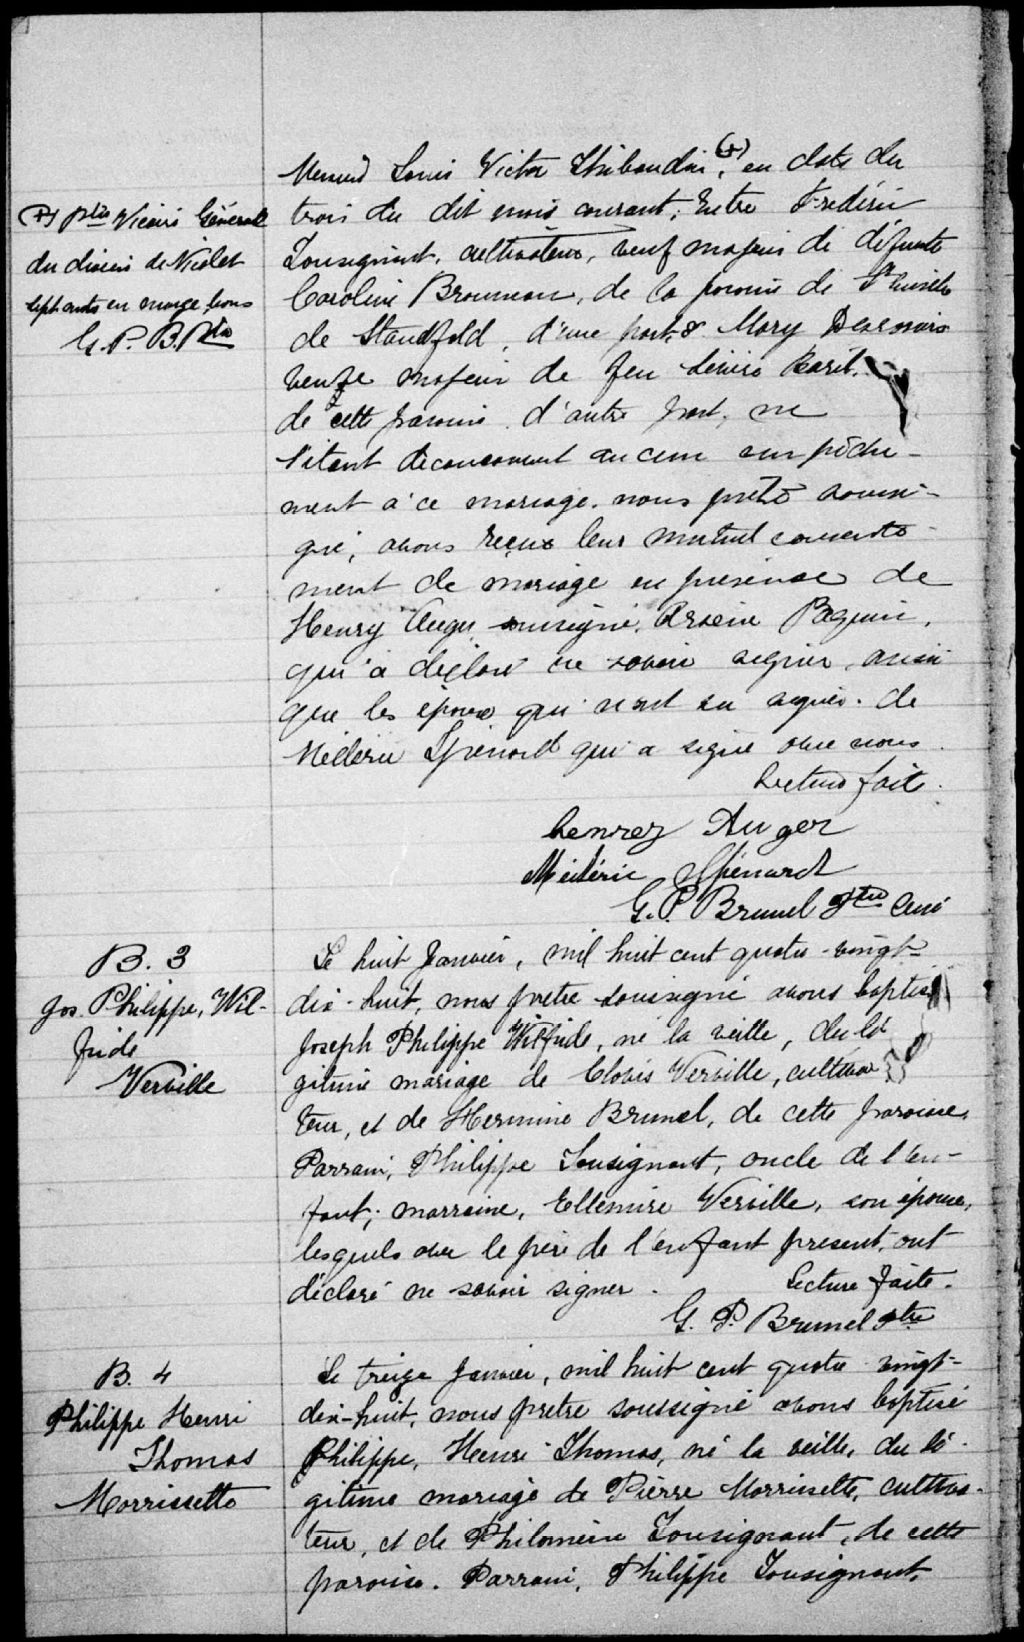 Louis Victor Thibaudier, (+) en date du
trois du dit mois courant; Entre Frédéric
Tousignant, cultivateur, veuf majeur de défunte
Caroline Brouneau, de la paroisse de St Eusèbe
de Standfold, d'une part, & Mary Desrosiers
veuve majeur de feu Baril,
de cette paroisse d'autre part, ne
s'étant découvert aucun empêche-
ment à ce mariage, nous prêtre soussi-
gné, avons reçus leur mutuel consente-
ment de mariage en présence de
Henry Auger soussigné, Arsène Paquin,
qui a déclaré ne savoir signer, ainsi
que les époux qui n'ont su signer. de
Médéric Spénard qui a signé avec nous.
Lecture faite.
henrez Auger
Médéric Spénard
G. P. Brunel Ptre Curé
(+) ptre Vicaire Général
du diocèse de Nicolet
sept mots en marge bons
G. P. B. Ptre
B. 3
Jos. Philippe, Wil-
fride
Verville
Le huit Janvier, mil huit cent quatre-vingt-
dix-huit, nous prêtre soussigné avons baptisé
Joseph Philippe Wilfride, né la veille, du lé
gitime mariage de Clovis Verville, cultiva
teur, et de Hermine Brunel, de cette paroisse,
Parrain, Philippe Tousignant, oncle de l'en-
fant; marraine, Ellemire Verville, son épouse,
lesquels avec le père de l'enfant présent, ont
déclaré ne savoir signer. Lecture faite.
G. P. Brunel Ptre
B. 4
Philippe Henri
Thomas
Morrissette
Le treize Janvier, mil huit cent quatre vingt-
dix-huit, nous prêtre soussigné avons baptisé
Philippe, Henri Thomas, né la veille, du lé-
gitime mariage de Pierre Morrissette, cultiva-
teur, et de Philomène Tousignant, de cette
paroisse. Parrain, Philippe Tousignant,